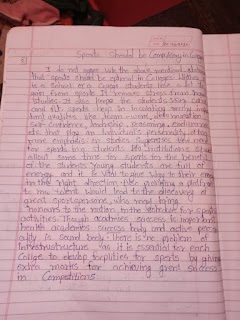 Sports Should be Compulsory in College
I do not agree with the above mentioned statement
that sports should be optional in Colleges. Whether
is a School or a College students take a lot to
gain from sports. It removes stress from their
studies. It also keeps the students more active
and fit. Sports help in inculcating many important
qualities like team work, determination
Self Confidence, leadership, reasoning and
etc that play an individual's personality.
more emphasis on studies suppresses the
for sports in students life. Institutions
allot some time for sports for the benefit
of the students. Young students are full of
energy and it is vital to give way to their energy
in the right direction like providing a platform
to new talent would lead to the discovery of
great sports persons, who would bring
honours to the nation in the for sports
activities. Though academics success is important
health academics success body and active personality
is sound body. There is no problem of
infrastructure as it is essential for each
College to develop facilities for sports by giving
extra marks for achieving great success
in Competitions